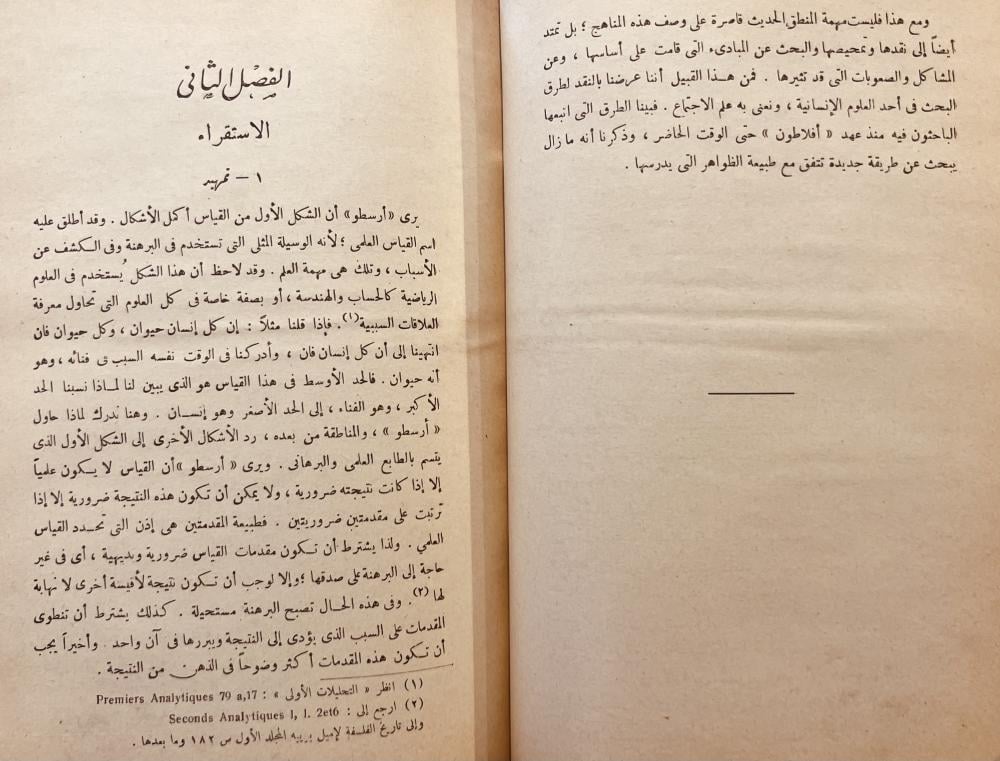 ومع هذا فليست مهمة المنطق الحديث قاصرة على وصف هذه المناهج ؛ بل تمتد
أيضاً إلى نقدها وتمحيصها والبحث عن المبادىء التى قامت على أساسها ، وعن
المشاكل والصعوبات التى قد تثيرها . فمن هذا القبيل أننا عرضنا بالنقد لطرق
البحث فى أحد العلوم الإنسانية ، ونعنى به علم الاجتماع . فبينا الطرق التى اتبعها
الباحثون فيه منذ عهد « أفلاطون » حتى الوقت الحاضر ، وذكرنا أنه مازال
يبحث عن طريقة جديدة تتفق مع طبيعة الظواهر التى يدرسها .
الفصل الثانى
الاستقراء
١ – تمهيد
يرى «أرسطو» أن الشكل الأول من القياس أكمل الأشكال . وقد أطلق عليه
اسم القياس العلمى ؛ لأنه الوسيلة المثلى التى تستخدم فى البرهنة وفى الكشف عن
الأسباب ، وتلك هى مهمة العلم . وقد لاحظ أن هذا الشكل يُستخدم فى العلوم
الرياضية كالحساب والهندسة ، أو بصفة خاصة فى كل العلوم التى تحاول معرفة
العلاقات السببية(١). فإذا قلنا مثلاً : إن كل إنسان حيوان ، وكل حيوان فان
انتهينا إلى أن كل إنسان فان ، وأدركنا فى الوقت نفسه السبب فى فنائه ، وهو
أنه حيوان . فالحد الأوسط فى هذا القياس هو الذى يبين لنا لماذا نسبنا الحد
الأكبر ، وهو الفناء ، إلى الحد الأصغر وهو إنسان . وهنا ندرك لماذا حاول
« أرسطو » ، والمناطقة من بعده ، رد الأشكال الأخرى إلى الشكل الأول الذى
يتسم بالطابع العلمى والبرهانى . ويرى « أرسطو »أن القياس لا يكون علمياً
إلا إذا كانت نتيجته ضرورية ، ولا يمكن أن تكون هذه النتيجة ضرورية إلا إذا
ترتبت على مقدمتين ضروريتين . فطبيعة المقدمتين هى إذن التى تحدد القياس
العلمي . ولذا يشترط أن تكون مقدمات القياس ضرورية وبديهية ، أى فى غير
حاجة إلى البرهنة على صدقها ؛ وإلا لوجب أن تكون نتيجة لأقيسة أخرى لا نهاية
لها (٢). وفى هذه الحال تصبح البرهنة مستحيلة . كذلك يشترط أن تنطوى
المقدمات على السبب الذى يؤدى إلى النتيجة ويبررها فى آن واحد . وأخيراً يجب
أن تكون هذه المقدمات أكثر وضوحاً فى الذهن من النتيجة .
(١) انظر « التحليلات الأولى » : Premiers Analytiques 79 a,17
(٢) ارجع إلى : Seconds Analytiques I, I. 2et6
وإلى تاريخ الفلسفة لإميل برييه المجلد الأول ص ١٨٢ وما بعدها .